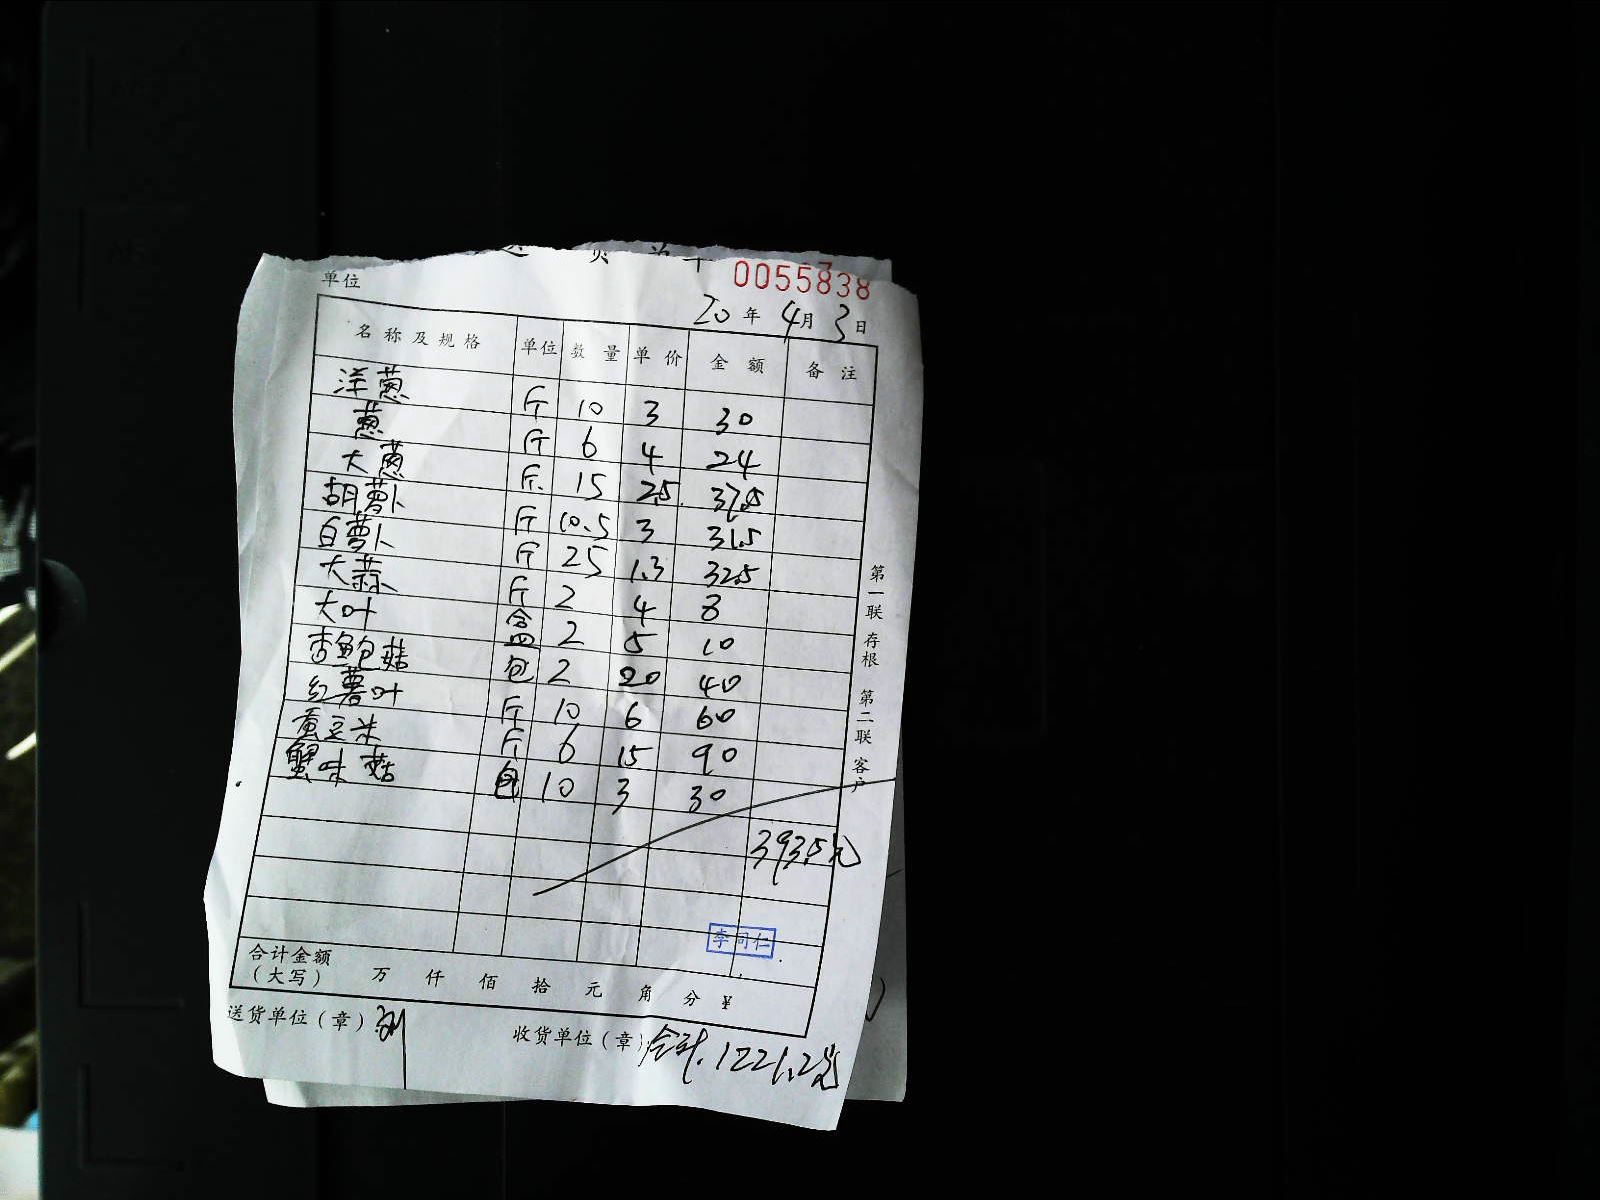 0055838
单位
20年 4月 3日
名称及规格 单位 数量 单价 金额 备注
洋葱 斤 10 3 30
葱 斤 6 4 24
大葱 斤 15 2.5 37.5
胡萝卜 斤 10.5 3 31.5
白萝卜 斤 25 1.3 32.5
大蒜 斤 2 4 8
大叶 盒 2 5 10
杏鲍菇 包 2 20 40
红薯叶 斤 10 6 60
蚕豆米 斤 6 15 90
蟹味菇 包 10 3 30
393.5元
李同仁
合计金额
(大写) 万 仟 佰 拾 元 角 分 ¥
送货单位(章) 刘
收货单位(章) 合计.1221.2元
第一联 存根 第二联 客户